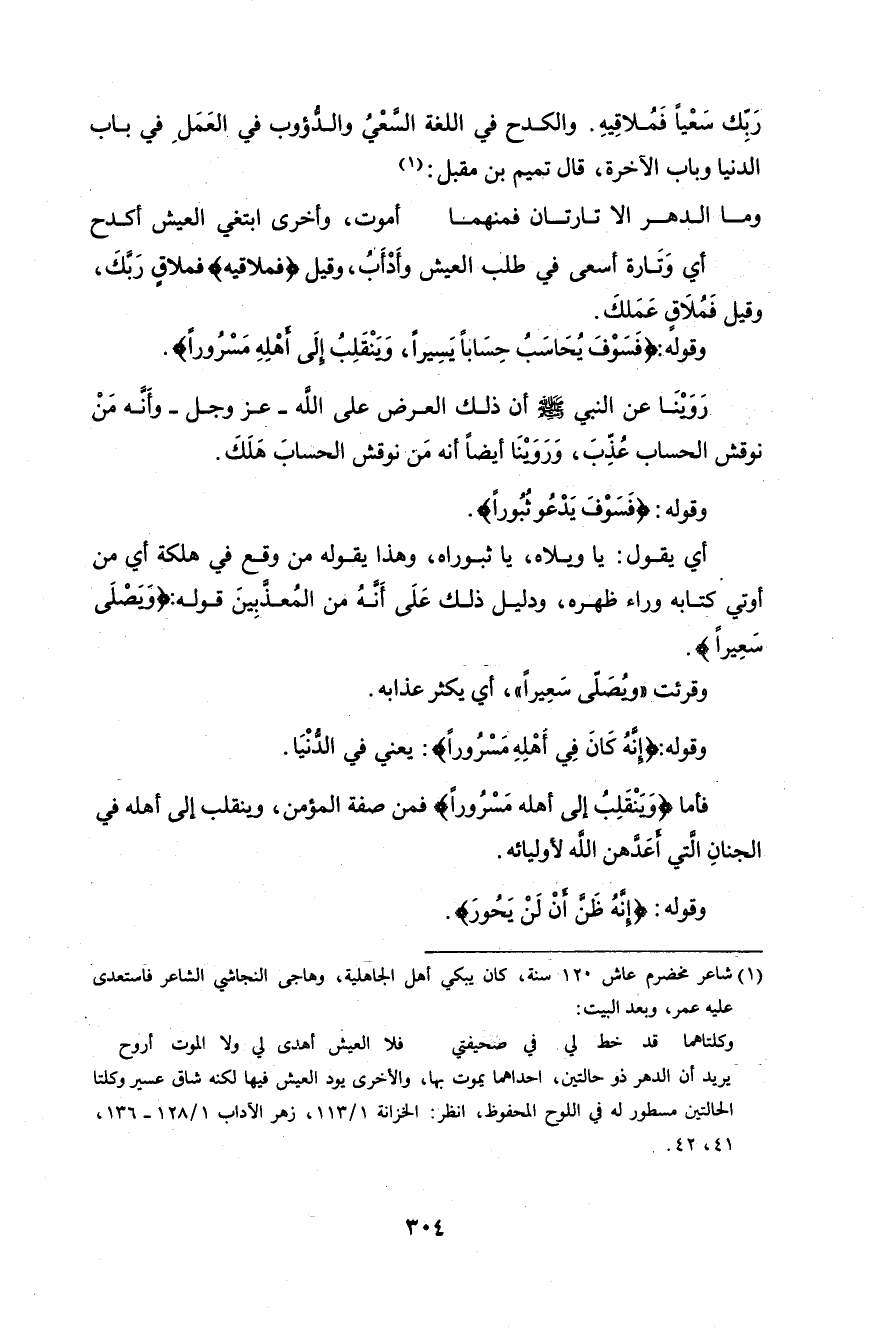 رَبِّك سَعْياً فَمُـلاقِيهِ. والكـدح في اللغة السَّعْيُ والـدُّؤوب في العَمَلِ في بـاب
الدنيا وباب الآخرة، قال تميم بن مقبل:(١)
ومـا الـدهـر الا تـارتـان فمنهمـا أموت، وأخرى ابتغي العيش أكـدح
أي وَتَـارة أسعى في طلب العيش وأَدْأَبُ، وقيل ﴿فملاقيه﴾ فملاقٍ رَبَّكَ،
وقيل فَمُلَاقٍ عَمَلكَ.
وقوله:﴿فَسَوْفَ يُحَاسَبُ حِسَاباً يَسِيراً، وَيَنْقَلِبُ إِلَى أَهْلِهِ مَسْرُوراً﴾.
رَوَيْنَـا عن النبي ﷺ أن ذلـك العـرض على اللَّه ـ عـز وجـل ـ وأنَّـه مَنْ
نوقش الحساب عُذِّبَ، وَرَوَيْنَا أيضاً أنه مَن نوقش الحسابَ هَلَكَ.
وقوله: ﴿فَسَوْفَ يَدْعُو ثُبُوراً﴾.
أي يقـول: يا ويـلاه، يا ثبـوراه، وهذا يقـوله من وقـع في هلكة أي من
أوتي كتـابه وراء ظهـره، ودليـل ذلـك عَلَى أَنَّـهُ من المُعـذَّبِينَ قـولـه:﴿وَيَصْلَى
سَعِيراً﴾.
وقرئت «ويُصَلَّى سَعِيراً»، أي يكثر عذابه.
وقوله:﴿إِنَّهُ كَانَ فِي أَهْلِهِ مَسْرُوراً﴾: يعني في الدُّنْيَا.
فأما ﴿وَيَنْقَلِبُ إلى أهله مَسْرُوراً﴾ فمن صفة المؤمن، وينقلب إلى أهله في
الجنانِ الَّتي أَعَدَّهن اللَّه لأوليائه.
وقوله: ﴿إِنَّهُ ظَنَّ أَنْ لَنْ يَحُورَ﴾.
(١) شاعر مخضرم عاش ١٢٠ سنة، كان يبكي أهل الجاهلية، وهاجى النجاشي الشاعر فاستعدى
عليه عمر، وبعد البيت:
وكلتاهما قد خط لي في صحيفتي فلا العيش أهدى لي ولا الموت أروح
يريد أن الدهر ذو حالتين، احداهما يموت بها، والأخرى يود العيش فيها لكنه شاق عسير وكلتا
الحالتين مسطور له في اللوح المحفوظ، انظر: الخزانة ١١٣/١، زهر الآداب ١٢٨/١ ـ ١٣٦،
٤١، ٤٢.
٣٠٤